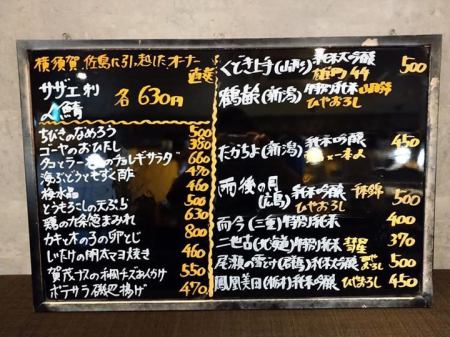 横須賀、佐島に引っ越したオーナー
直送
サザエ刺
〆鯖
各630円
ちびきのなめろう 500
ゴーヤのおひたし 380
タコと のチョレギサラダ 660
海ぶどうともずく酢 470
梅水晶 460
とうもろこしの天ぷら 500
鶏の九条葱まみれ 630
カキと木の子の卵とじ 800
しいたけの明太マヨ焼き 460
賀茂ナスの チーズあんかけ 550
ポテサラ磯辺揚げ 470
くどき上手(山形) 純米大吟醸 500
鶴齢(新潟) 特別純米
ひやおろし
たかちよ(新潟) 純米吟醸 450
雨後の月(広島) 純米吟醸 500
ひやおろし
而今(三重)特別純米 400
二世古(北海道)特別純米 彗星 370
尾瀬の雪どけ(群馬)純米大吟醸 ひやおろし 500
鳳凰美田(栃木)純米吟醸 ひやおろし 450